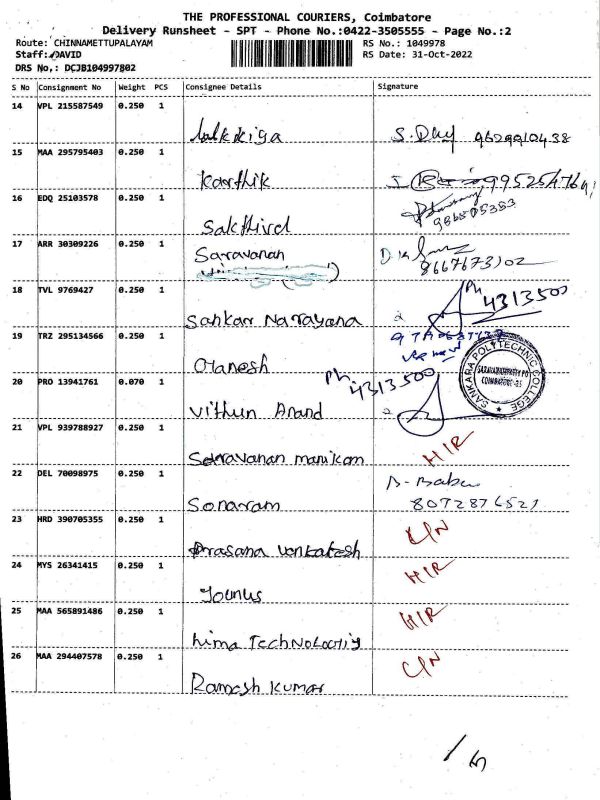 THE PROFESSIONAL COURIERS, Coimbatore
Delivery Runsheet - SPT - Phone No.:0422-3505555 - Page No.:2
Route: CHINNAMETTUPALAYAM RS No.: 1049978
Staff: DAVID RS Date: 31-Oct-2022
DRS No.: DCJB104997802
S No Consignment No Weight PCS Consignee Details Signature
14 VPL 215587549 0.250 1
S. 9629910438
15 MAA 295795403 0.250 1
Karthik
16 EDQ 25103578 0.250 1
Sakthivel
17 ARR 30309226 0.250 1
Saravanan
8667673102
18 TVL 9769427 0.250 1
Ph 4313500
Sankar Narayana
19 TRZ 295134566 0.250 1
Ganesh
SANKARA POLYTECHNIC COLLEGE
SARAVANAMPATTY PO
COIMBATORE-35
20 PRO 13941761 0.070 1
Ph 4313500
Vithun Anand
21 VPL 939788927 0.250 1
Saravanan manikam HIR
22 DEL 70098975 0.250 1
B. Babu
Sonaram 8072876521
23 HRD 390705355 0.250 1
C/N
Prasana Venkatesh
24 MYS 26341415 0.250 1
HIR
Younus
25 MAA 565891486 0.250 1
HIR
hima Technologiy
26 MAA 294407578 0.250 1
C/N
Ramesh Kumar